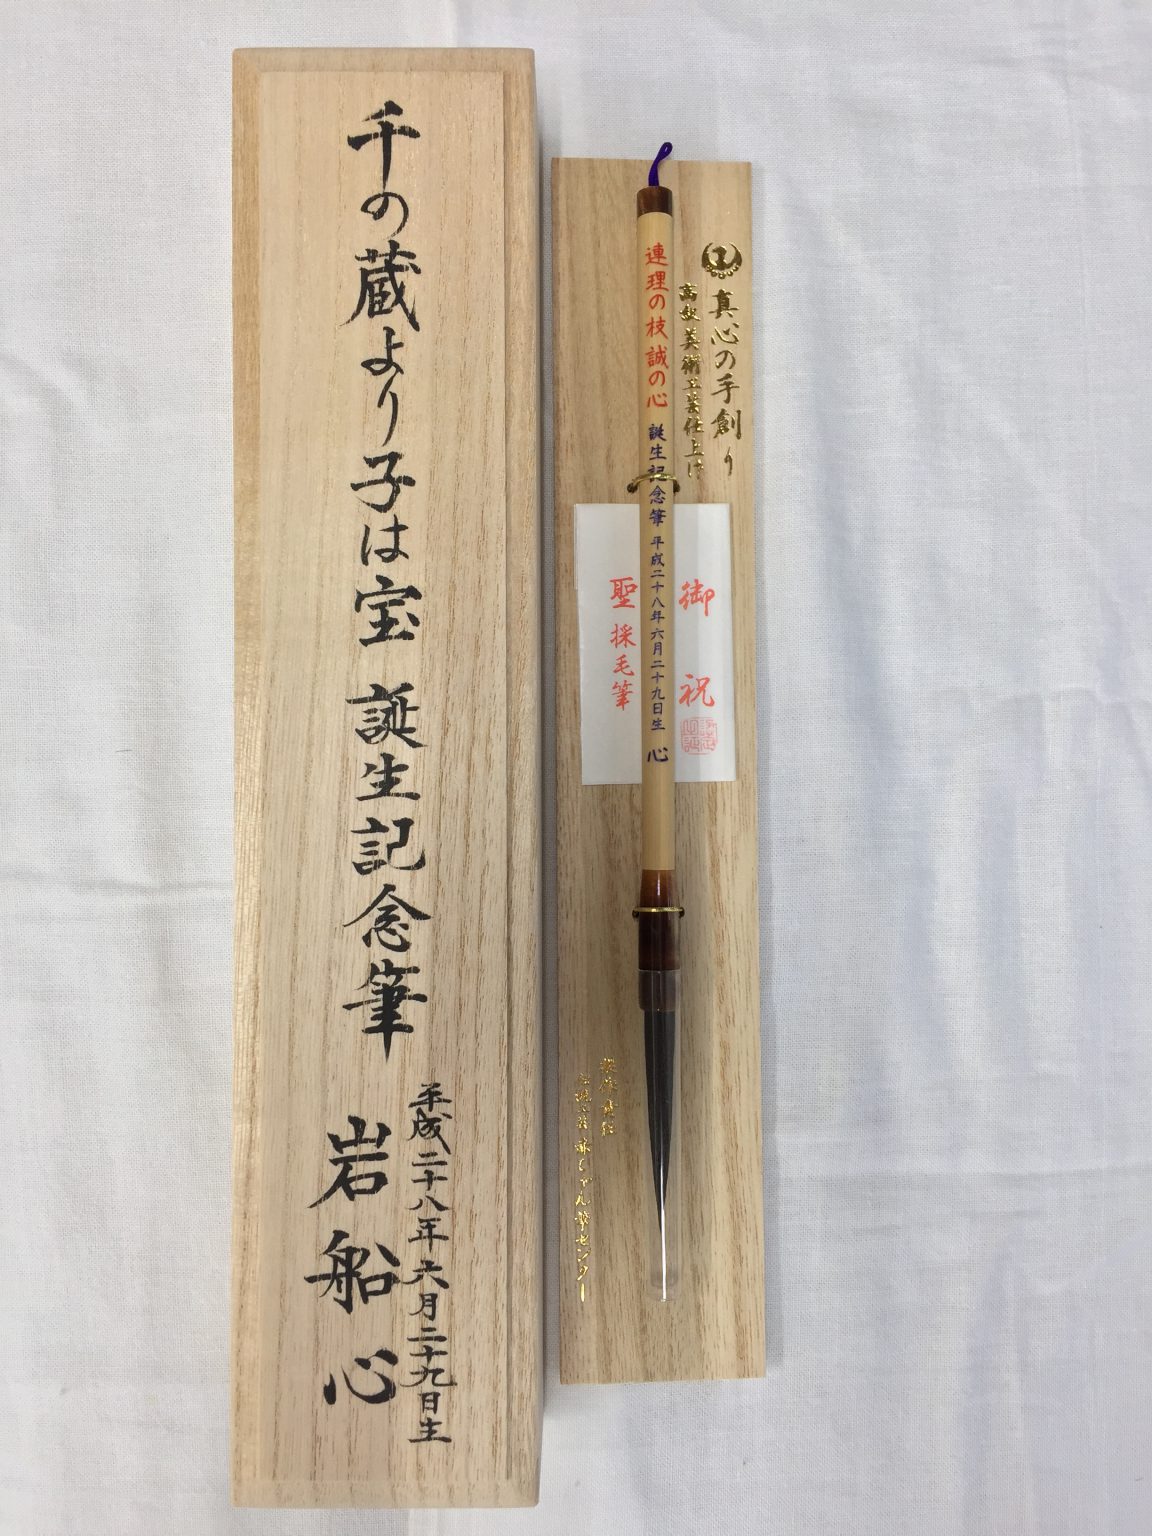 千の蔵より子は宝 誕生記念筆
平成二十八年六月二十九日生
岩船心
真心の手創り
高級美術工芸仕上げ
連理の枝 誠の心 誕生記念筆 平成二十八年六月二十九日生 心
御祝
聖採毛筆
赤ちゃん筆センター